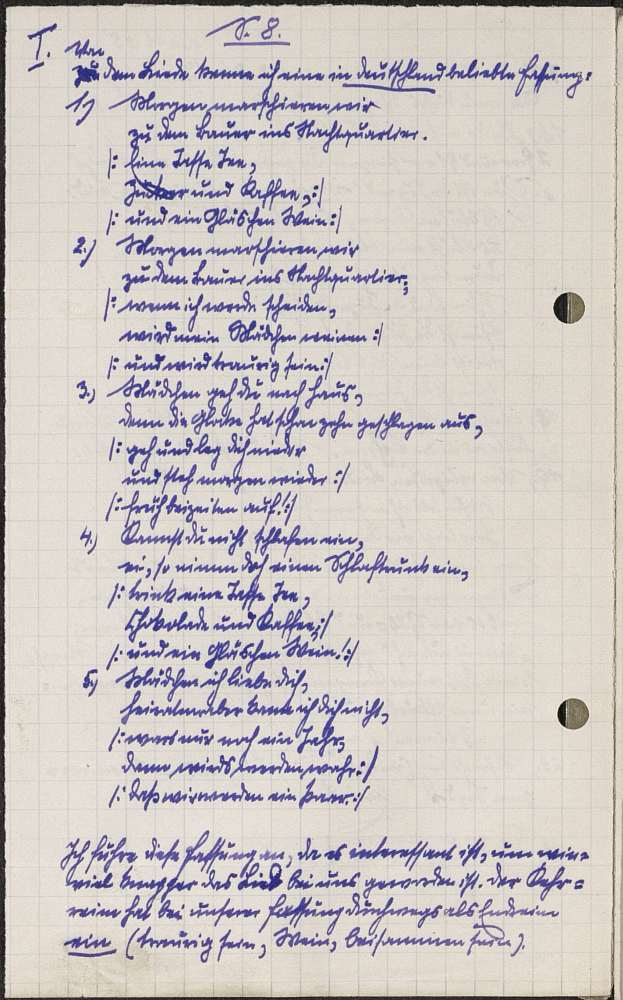 S. 8.
I. Von
dem Liede kenne ich eine in Deutschland beliebte Fassung:
1.) Morgen marschieren wir
zu dem Bauer ins Nachtquartier.
|: Eine Tasse Tee,
Zucker und Kaffee, :|
|: und ein Gläschen Wein :|
2.) Morgen marschieren wir
zu dem Bauer ins Nachtquartier;
|: wenn ich werde scheiden,
wird mein Mädchen weinen :|
|: und wird traurig sein :|
3.) Mädchen geh du nach Haus,
denn die Glocke hat schon zehn geschlagen aus,
|: geh und leg dich nieder
und steh morgen wieder :|
|: früh beizeiten auf! :|
4.) Kannst du nicht schlafen ein,
ei, so nimm doch einen Schlaftrunk ein,
|: trink eine Tasse Tee,
Chokolade und Kaffee, :|
|: und ein Gläschen Wein! :|
5.) Mädchen ich liebe dich,
heiraten aber kann ich dich nicht,
|: wart nur noch ein Jahr,
dann wirds werden wahr :|
|: daß wir werden ein Paar. :|
Ich führe diese Fassung an, da es interessant ist, um wie-
viel knapper das Lied bei uns geworden ist. Der Kehr=
reim hat bei unserer Fassung durchwegs als Endreim
ein (traurig sein, Wein, beisammen sein).